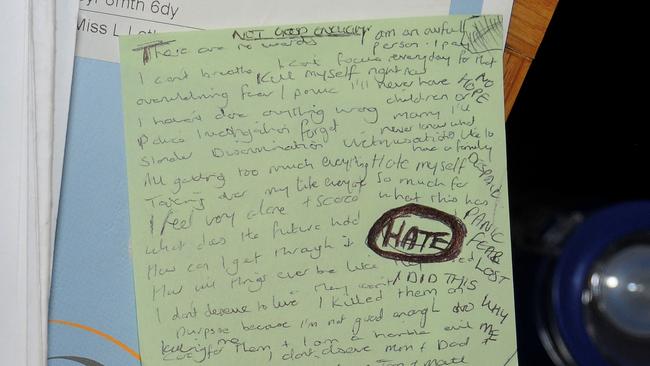 6dy
Miss L
NOT GOOD ENOUGH
There are no words
I am an awful person. I pay everyday for that
I can't breathe
can't focus
Kill myself right now
overwhelming fear / panic
I'll never have children or marry
NO HOPE
I haven't done anything wrong
I'll never know what
Police investigation forget
it's like to have a family
Slander Discrimination Victimisation
All getting too much everything
Hate myself so much for what this has
DESPAIR
Taking over my life everyday
I feel very alone + scared
PANIC
What does the future hold
HATE
FEAR
How can I get through it
LOST
How will things ever be like
they won't
I DID THIS
I don't deserve to live
I killed them on purpose because I'm not good enough to care for them + I am a horrible evil
WHY ME
killing me
I don't deserve Mum + Dad +